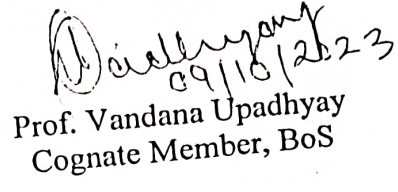 09/10/2023
Prof. Vandana Upadhyay
Cognate Member, BoS